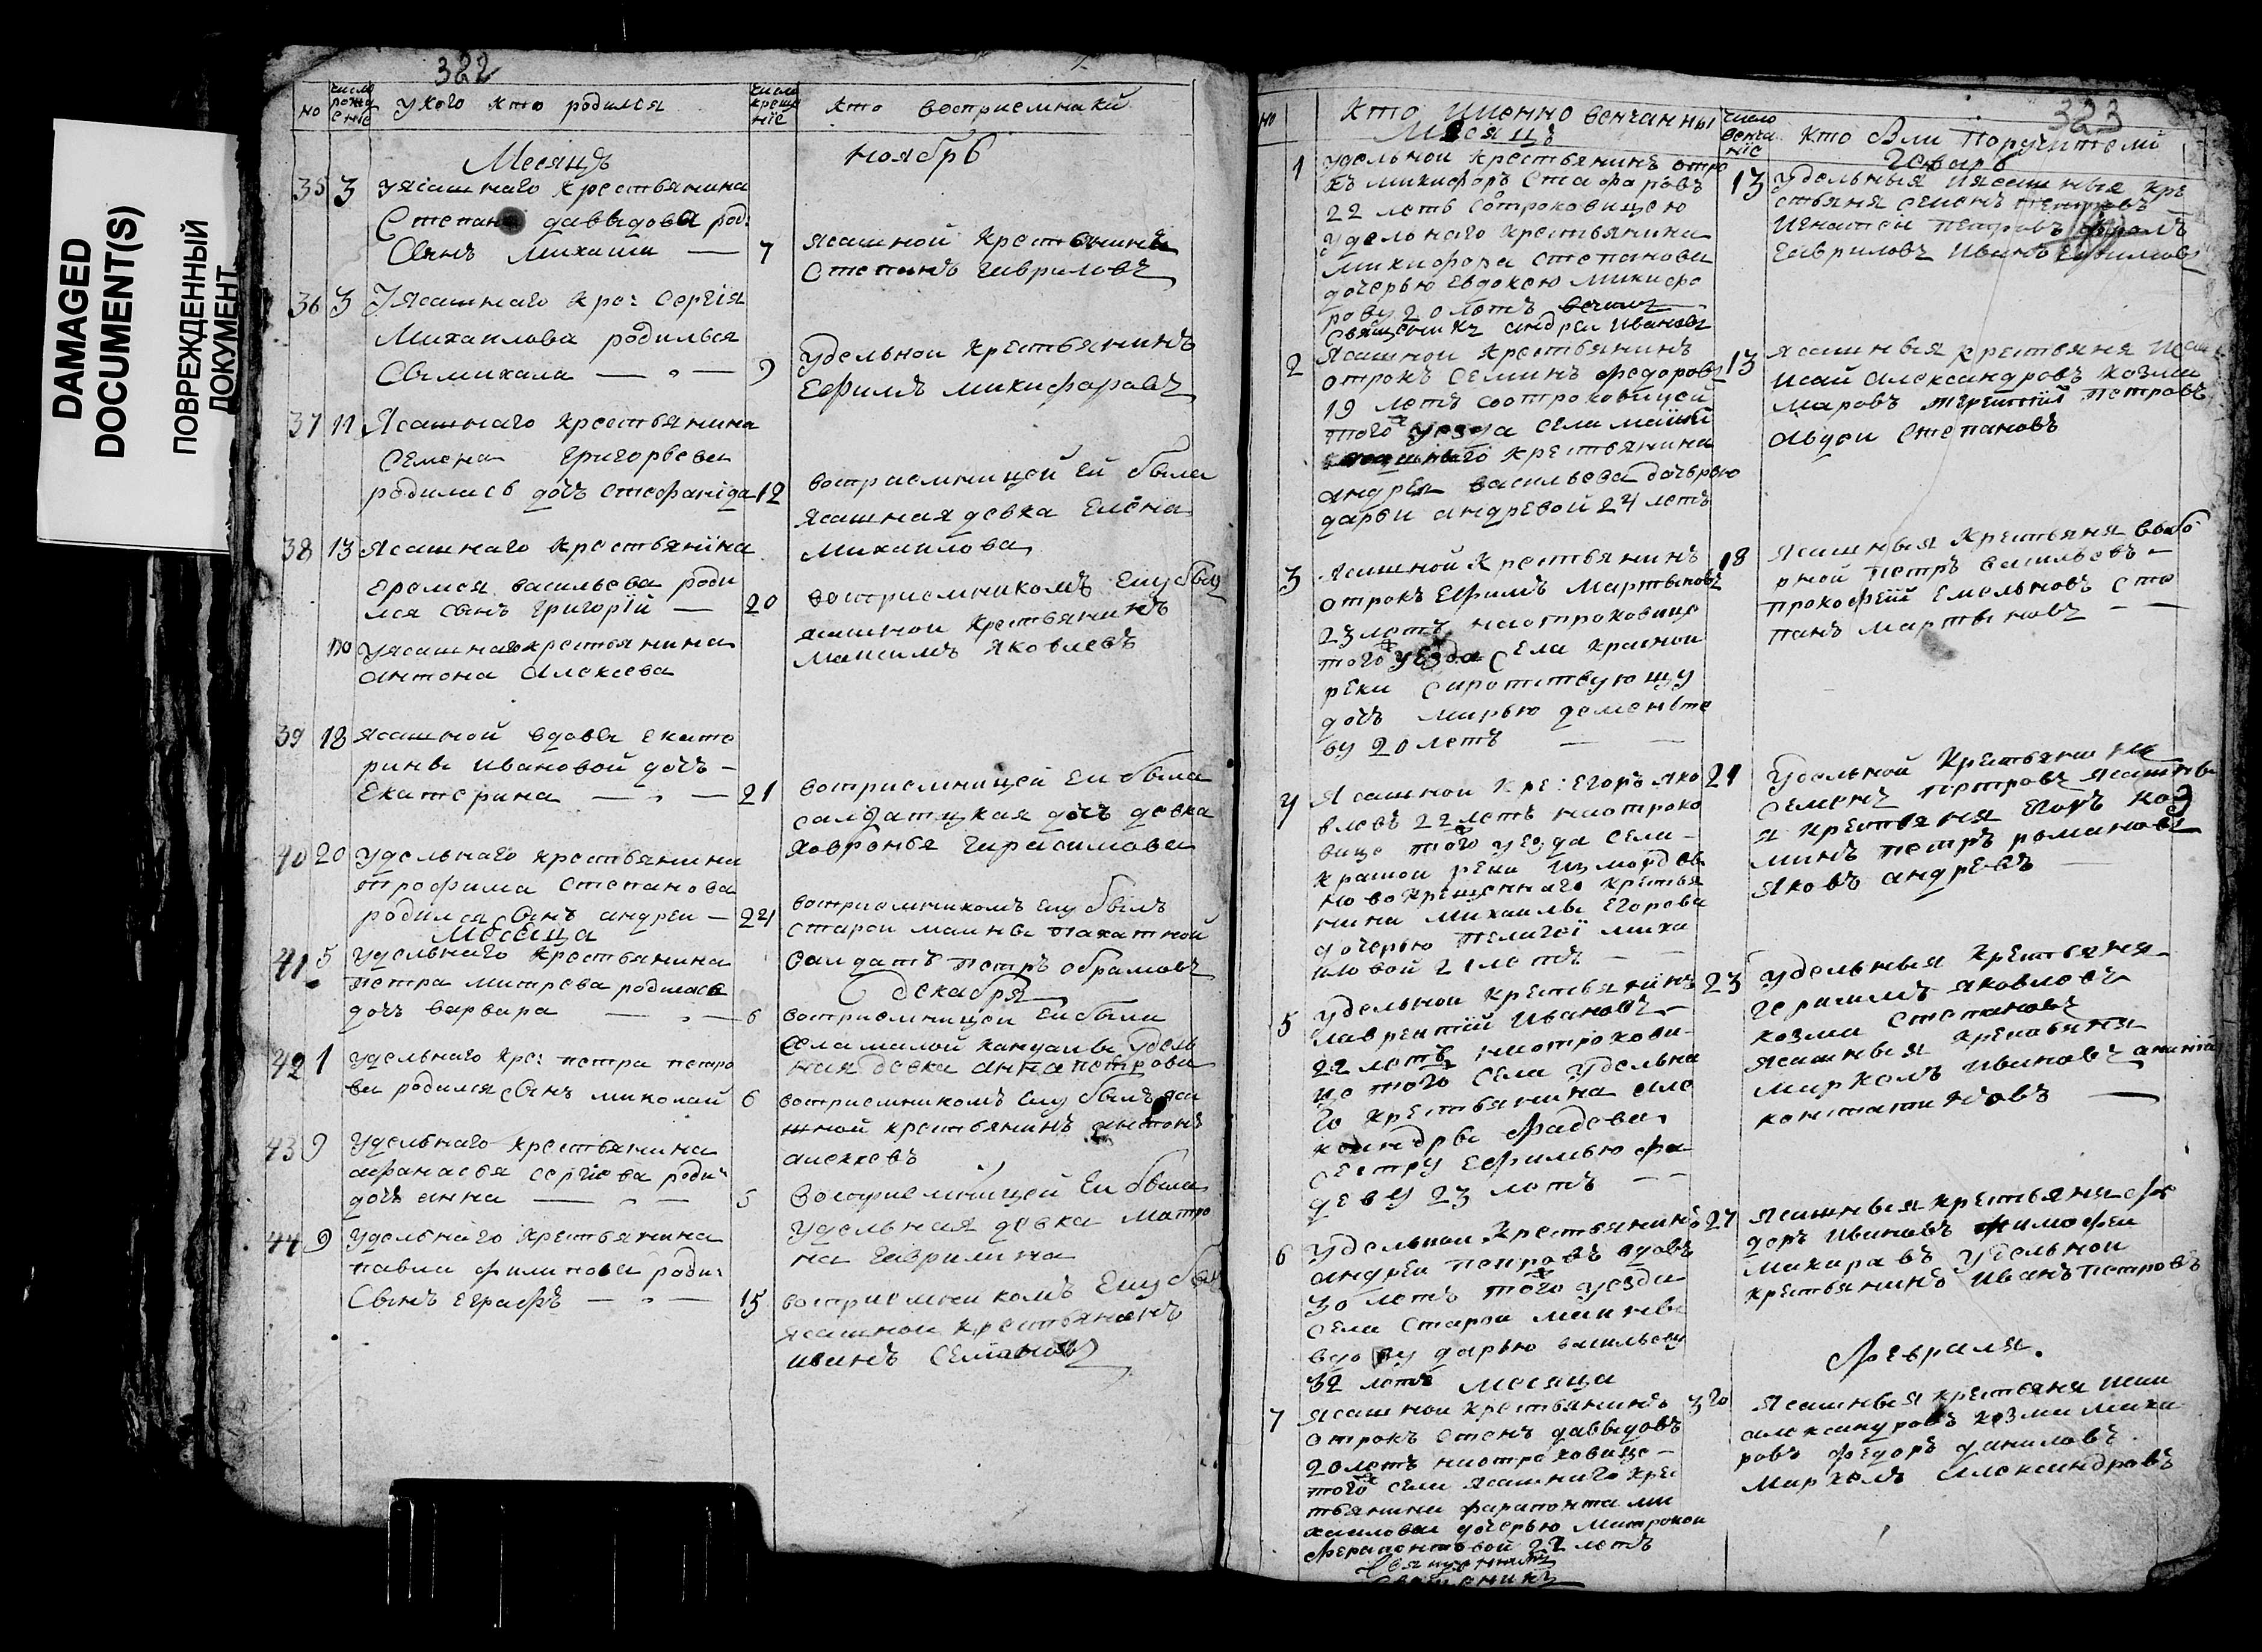 DAMAGED
DOCUMENT(S)
ПОВРЕЖДЕННЫЙ
ДОКУМЕНТ
322
но
число рожденіе
у кого кто родился
число крещеніе
кто восприемники
Месяцъ
ноябрь
35 3 у ясашнаго крестьянина
Степана давыдова род:
сынъ михаила — 7
ясашной крестьянинъ
Степанъ гавриловъ
36 3 У ясашнаго кре: сергія
михаилова родилься
сы михаила — 9
удельной крестьянинъ
Ефимъ микифоровъ
37 11 Ясашнаго крестьянина
Семена григорьева
родилась дочь стефанида 12
востриемницей ей была
ясашная девка Елена
михаилова
38 13 ясашнаго крестьянина
ерамея васильева роди
лся сынъ григорій — 20
востриемникомъ ему был
ясашной крестьянинъ
Максимъ яковлевъ
у ясашнаго крестьянина
антона алексева
39 18 ясашной вдовы екате
рины ивановой дочь —
Екатерина — 21
востриемницей ей была
салдатцкая дочь девка
ховронья гирасимова
40 20 удельнаго крестьянина
трофима степанова
родился сынъ андреи — 21
востриемникомъ ему былъ
старой маины пахатной
салдатъ петръ обрамовъ
Месеца
декабря
41 5 удельнаго крестьянина
петра митрева родилась
дочь варвара — 6
востриемницей ей была
села малой кандалы удель
ная девка анна петрова
42 1 удельнаго кре: петра петро
ва родился сынъ миколай 6
востриемникомъ ему былъ яса
шной крестьянинъ антонъ
алексевъ
43 9 удельнаго крестьянина
афанасья сергіева роди:
дочь анна — 5
востриемницей ей была
удельная девка матро
на гаврилина
44 9 удельнаго крестьянина
павла филипова роди:
сынъ евграфъ — 15
востриемникомъ ему был
ясашной крестьянинъ
иванъ семановъ
323
но
кто именно венчанны
Месяцъ
число венчаніе
кто были поручители
Генварь
1 удельной крестьянинъ отро
къ микифоръ
22 летъ сотроковицею
удельнаго крестьянина
микифора степанова
дочерью евдокею микифо
рову 20 летъ
священикъ андреи ивановъ
13 удельныя ясашныя кре
стьяня семенъ петровъ
игнатеи петровъ
гавриловъ иванъ
2 ясашной крестьянинъ
отрокъ семинъ федоровъ 13
19 летъ соотроковицей
того уезда села маины
крестьянина
андрея васильева дочерью
дарьи андревой 24 летъ
ясашныя крестьяня
исай александровъ козма
маровъ петровъ
авдеи степановъ
3 ясашной крестьянинъ 18
отрокъ ефимъ мартыновъ
23 летъ наотроковице
того уезда села красной
реки
дочь марью деменьте
ву 20 летъ
ясашныя крестьяня выбо
рной петръ васильевъ
прокофей емельяновъ сте
панъ мартыновъ
4 ясашной кре: егоръ яко 21
влевъ 22 летъ наотроко
вице того уезда села
красной реки из мордов
новокрещеннаго крестья
нина михаилы егорова
дочерью миха
иловой 21 летъ
удельной крестьянинъ
семенъ петровъ ясашны
я крестьяня егоръ коз
минъ петръ романовъ
яковъ андревъ
5 удельной крестьянинъ 23
лаврентій ивановъ
22 летъ наотрокови
це того села удельна
го крестьянина але
ксандры фадева
сестру ефимью фа
деву 23 летъ
удельныя крестьяня
герасимъ яковлевъ
козма степановъ
ясашныя крестьяня
маркелъ ивановъ
константиновъ
6 удельной крестьянинъ 27
андреи петровъ вдовъ
30 летъ того уезда
села старой маины
вдову дарью васильеву
32 летъ
ясашныя крестьяня фе
доръ ивановъ тимофеи
макаравъ удельной
крестьянинъ иванъ петровъ
месяца
Февраля.
7 ясашной крестьянинъ
отрокъ степанъ давыдовъ
20 летъ наотроковице
того села ясашнаго крес
тьянина фарапонта ми
хаилова дочерью матроной
ферапонтовой 22 летъ
священикъ
ясашныя крестьяня исаи
александровъ козма мака
ровъ федоръ даниловъ
маркелъ александровъ